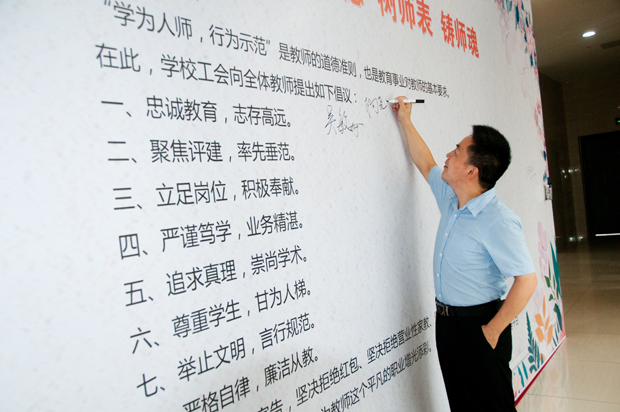 树师表 铸师魂
“学为人师，行为示范”是教师的道德准则，也是教育事业对教师的基本要求。
在此，学校工会向全体教师提出如下倡议：
一、忠诚教育，志存高远。
二、聚焦评建，率先垂范。
三、立足岗位，积极奉献。
四、严谨笃学，业务精湛。
五、追求真理，崇尚学术。
六、尊重学生，甘为人梯。
七、举止文明，言行规范。
严格自律，廉洁从教。
坚决拒绝红包、坚决拒绝营业性家教、
为教师这个平凡的职业增光添彩。